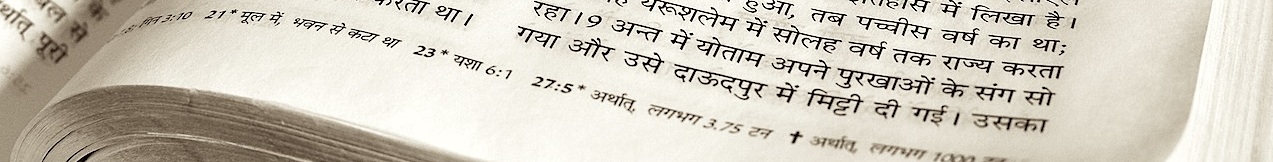 बल से
र्थात् पूरी
करता था।
3:10 21* मूल में, भवन से कटा था 23* यशा 6:1
में लिखा है।
हुआ, तब पच्चीस वर्ष का था;
यरूशलेम में सोलह वर्ष तक राज्य करता
रहा। 9 अन्त में योताम अपने पुरखाओं के संग सो
गया और उसे दाऊदपुर में मिट्टी दी गई। उसका
27:5* अर्थात्, लगभग 3.75 टन † अर्थात्, लगभग 1000